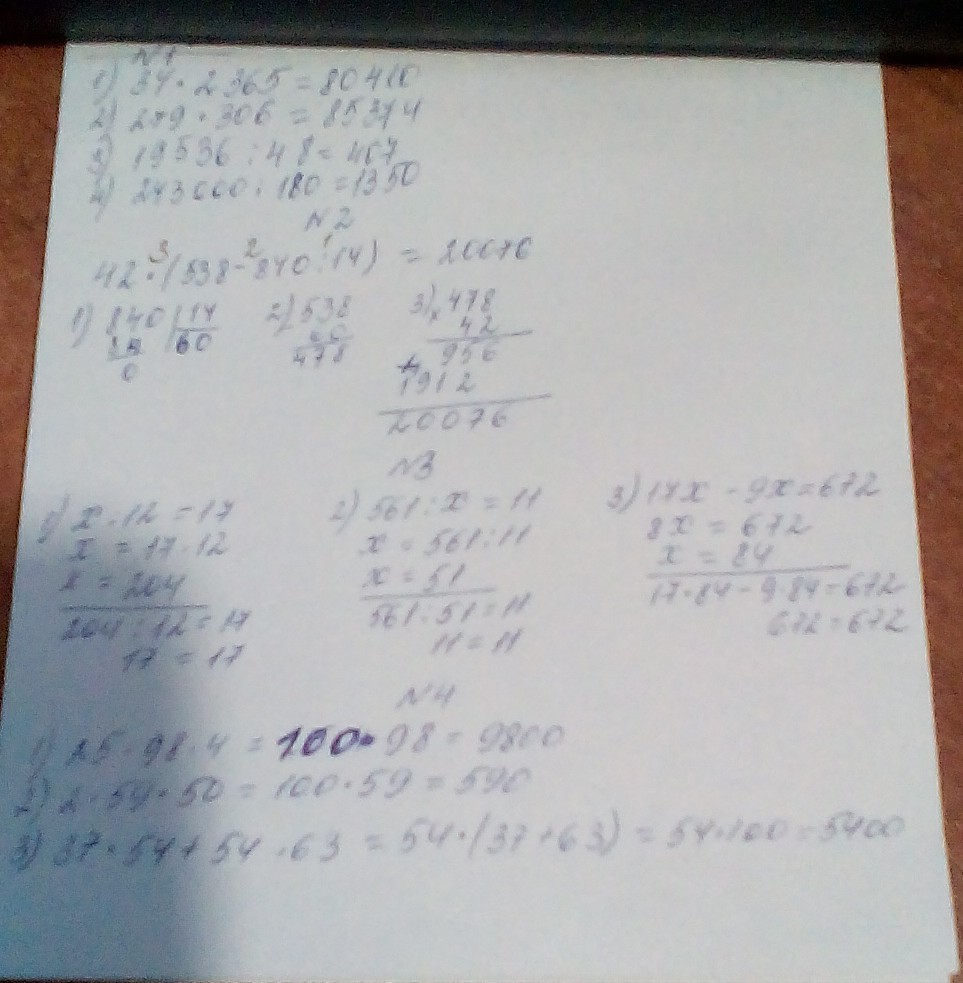 N1
1) 34 · 2 365 = 80410
2) 279 · 306 = 85374
3) 19536 : 48 = 407
4) 243000 : 180 = 1350
N2
3 2 1
42 · (538 - 840 : 14) = 20076
1) 840 | 14 2) 538 3) x 478
84 60 60 42
0 478 956
+ 1912
20076
N3
1) x : 12 = 17 2) 561 : x = 11 3) 17x - 9x = 672
x = 17 · 12 x = 561 : 11 8x = 672
x = 204 x = 51 x = 84
204 : 12 = 17 561 : 51 = 11 17 · 84 - 9 · 84 = 672
17 = 17 11 = 11 672 = 672
N4
1) 25 · 98 · 4 = 100 · 98 = 9800
2) 2 · 59 · 50 = 100 · 59 = 590
3) 37 · 54 + 54 · 63 = 54 · (37 + 63) = 54 · 100 = 5400